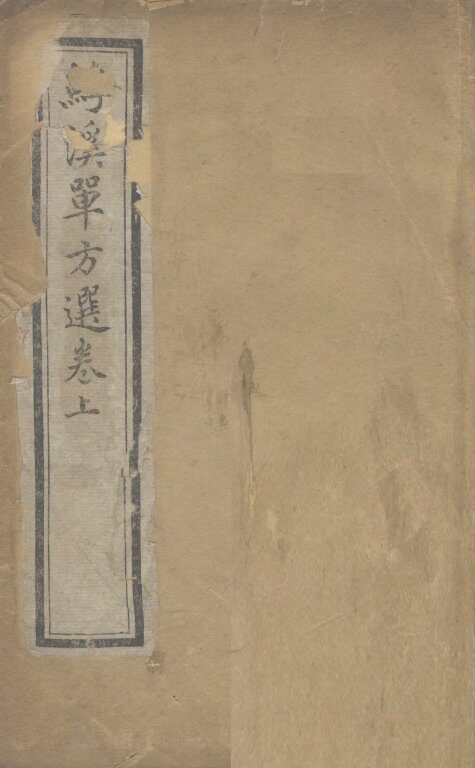 溪單方選卷上